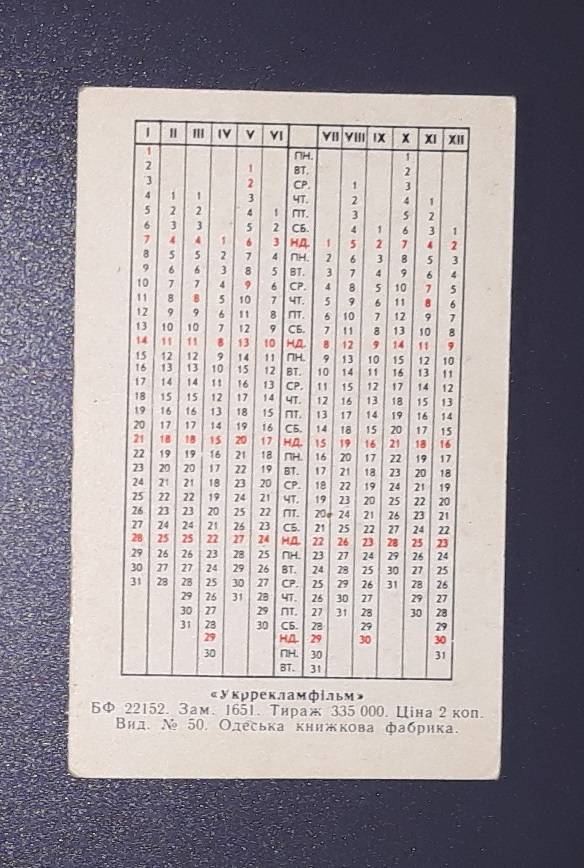 I II III IV V VI VII VIII IX X XI XII
1 ПН. 1
2 1 ВТ. 2
3 2 СР. 1 3
4 1 1 3 ЧТ. 2 4 1
5 2 2 4 1 ПТ. 3 5 2
6 3 3 5 2 СБ. 4 1 6 3 1
7 4 4 1 6 3 НД. 1 5 2 7 4 2
8 5 5 2 7 4 ПН. 2 6 3 8 5 3
9 6 6 3 8 5 ВТ. 3 7 4 9 6 4
10 7 7 4 9 6 СР. 4 8 5 10 7 5
11 8 8 5 10 7 ЧТ. 5 9 6 11 8 6
12 9 9 6 11 8 ПТ. 6 10 7 12 9 7
13 10 10 7 12 9 СБ. 7 11 8 13 10 8
14 11 11 8 13 10 НД. 8 12 9 14 11 9
15 12 12 9 14 11 ПН. 9 13 10 15 12 10
16 13 13 10 15 12 ВТ. 10 14 11 16 13 11
17 14 14 11 16 13 СР. 11 15 12 17 14 12
18 15 15 12 17 14 ЧТ. 12 16 13 18 15 13
19 16 16 13 18 15 ПТ. 13 17 14 19 16 14
20 17 17 14 19 16 СБ. 14 18 15 20 17 15
21 18 18 15 20 17 НД. 15 19 16 21 18 16
22 19 19 16 21 18 ПН. 16 20 17 22 19 17
23 20 20 17 22 19 ВТ. 17 21 18 23 20 18
24 21 21 18 23 20 СР. 18 22 19 24 21 19
25 22 22 19 24 21 ЧТ. 19 23 20 25 22 20
26 23 23 20 25 22 ПТ. 20 24 21 26 23 21
27 24 24 21 26 23 СБ. 21 25 22 27 24 22
28 25 25 22 27 24 НД. 22 26 23 28 25 23
29 26 26 23 28 25 ПН. 23 27 24 29 26 24
30 27 27 24 29 26 ВТ. 24 28 25 30 27 25
31 28 28 25 30 27 СР. 25 29 26 31 28 26
29 26 31 28 ЧТ. 26 30 27 29 27
30 27 29 ПТ. 27 31 28 30 28
31 28 30 СБ. 28 29 29
29 НД. 29 30 30
30 ПН. 30 31
ВТ. 31
«Укррекламфільм»
БФ 22152. Зам. 1651. Тираж 335 000. Ціна 2 коп.
Вид. № 50. Одеська книжкова фабрика.